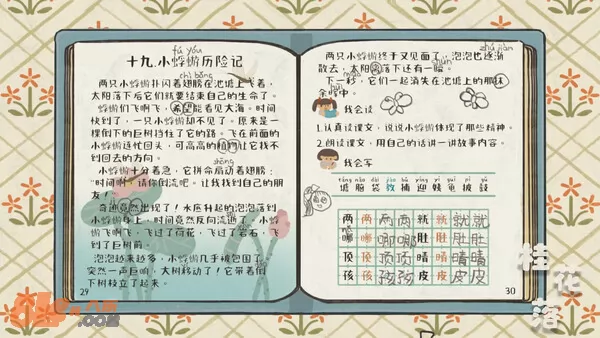 fú yóu
十九.小蜉蝣历险记
chì bǎng
两只小蜉蝣扑闪着翅膀在池塘上飞着,
太阳落下后它们就要结束自己的生命了。
蜉蝣们飞啊飞,希望能看见大海。时间
快到了,一只小蜉蝣却不见了。原来是一
棵倒下的巨树挡住了它的路。飞在前面的
小蜉蝣连忙回头,可高高的植物让它找不
到回去的方向。
小蜉蝣十分着急,它拼命扇动着翅膀:
“时间啊,请你倒流吧。让我找到自己的朋
友!”
奇迹竟然出现了!水底升起的泡泡落到
小蜉蝣身上,时间竟然反向流逝了。小蜉
蝣飞啊飞,飞过了荷花,飞过了岩石,飞
到了巨树前。
泡泡越来越多,小蜉蝣几乎被包围了。
突然一声巨响,大树移动了!它带着倒
下树枝立了起来。
29
zhú jiàn
两只小蜉蝣终于又见面了,泡泡也逐渐
散去,太阳落下还有一瞬。
shùn
下一秒,它们一起消失在池塘上的那抹
余晖中。
我会读
1.认真读课文,说说小蜉蝣体现了那些精神。
2.朗读课文,用自己的话讲一讲故事内容。
我会写
塘 脑 袋 教 捕 迎 姨 龟 披 鼓
两 两 两 两 就 就 就 就
哪 哪 哪 哪 肚 肚 肚 肚
顶 顶 顶 顶 睛 睛 睛 睛
孩 孩 孩 孩 皮 皮 皮 皮
30
桂花落